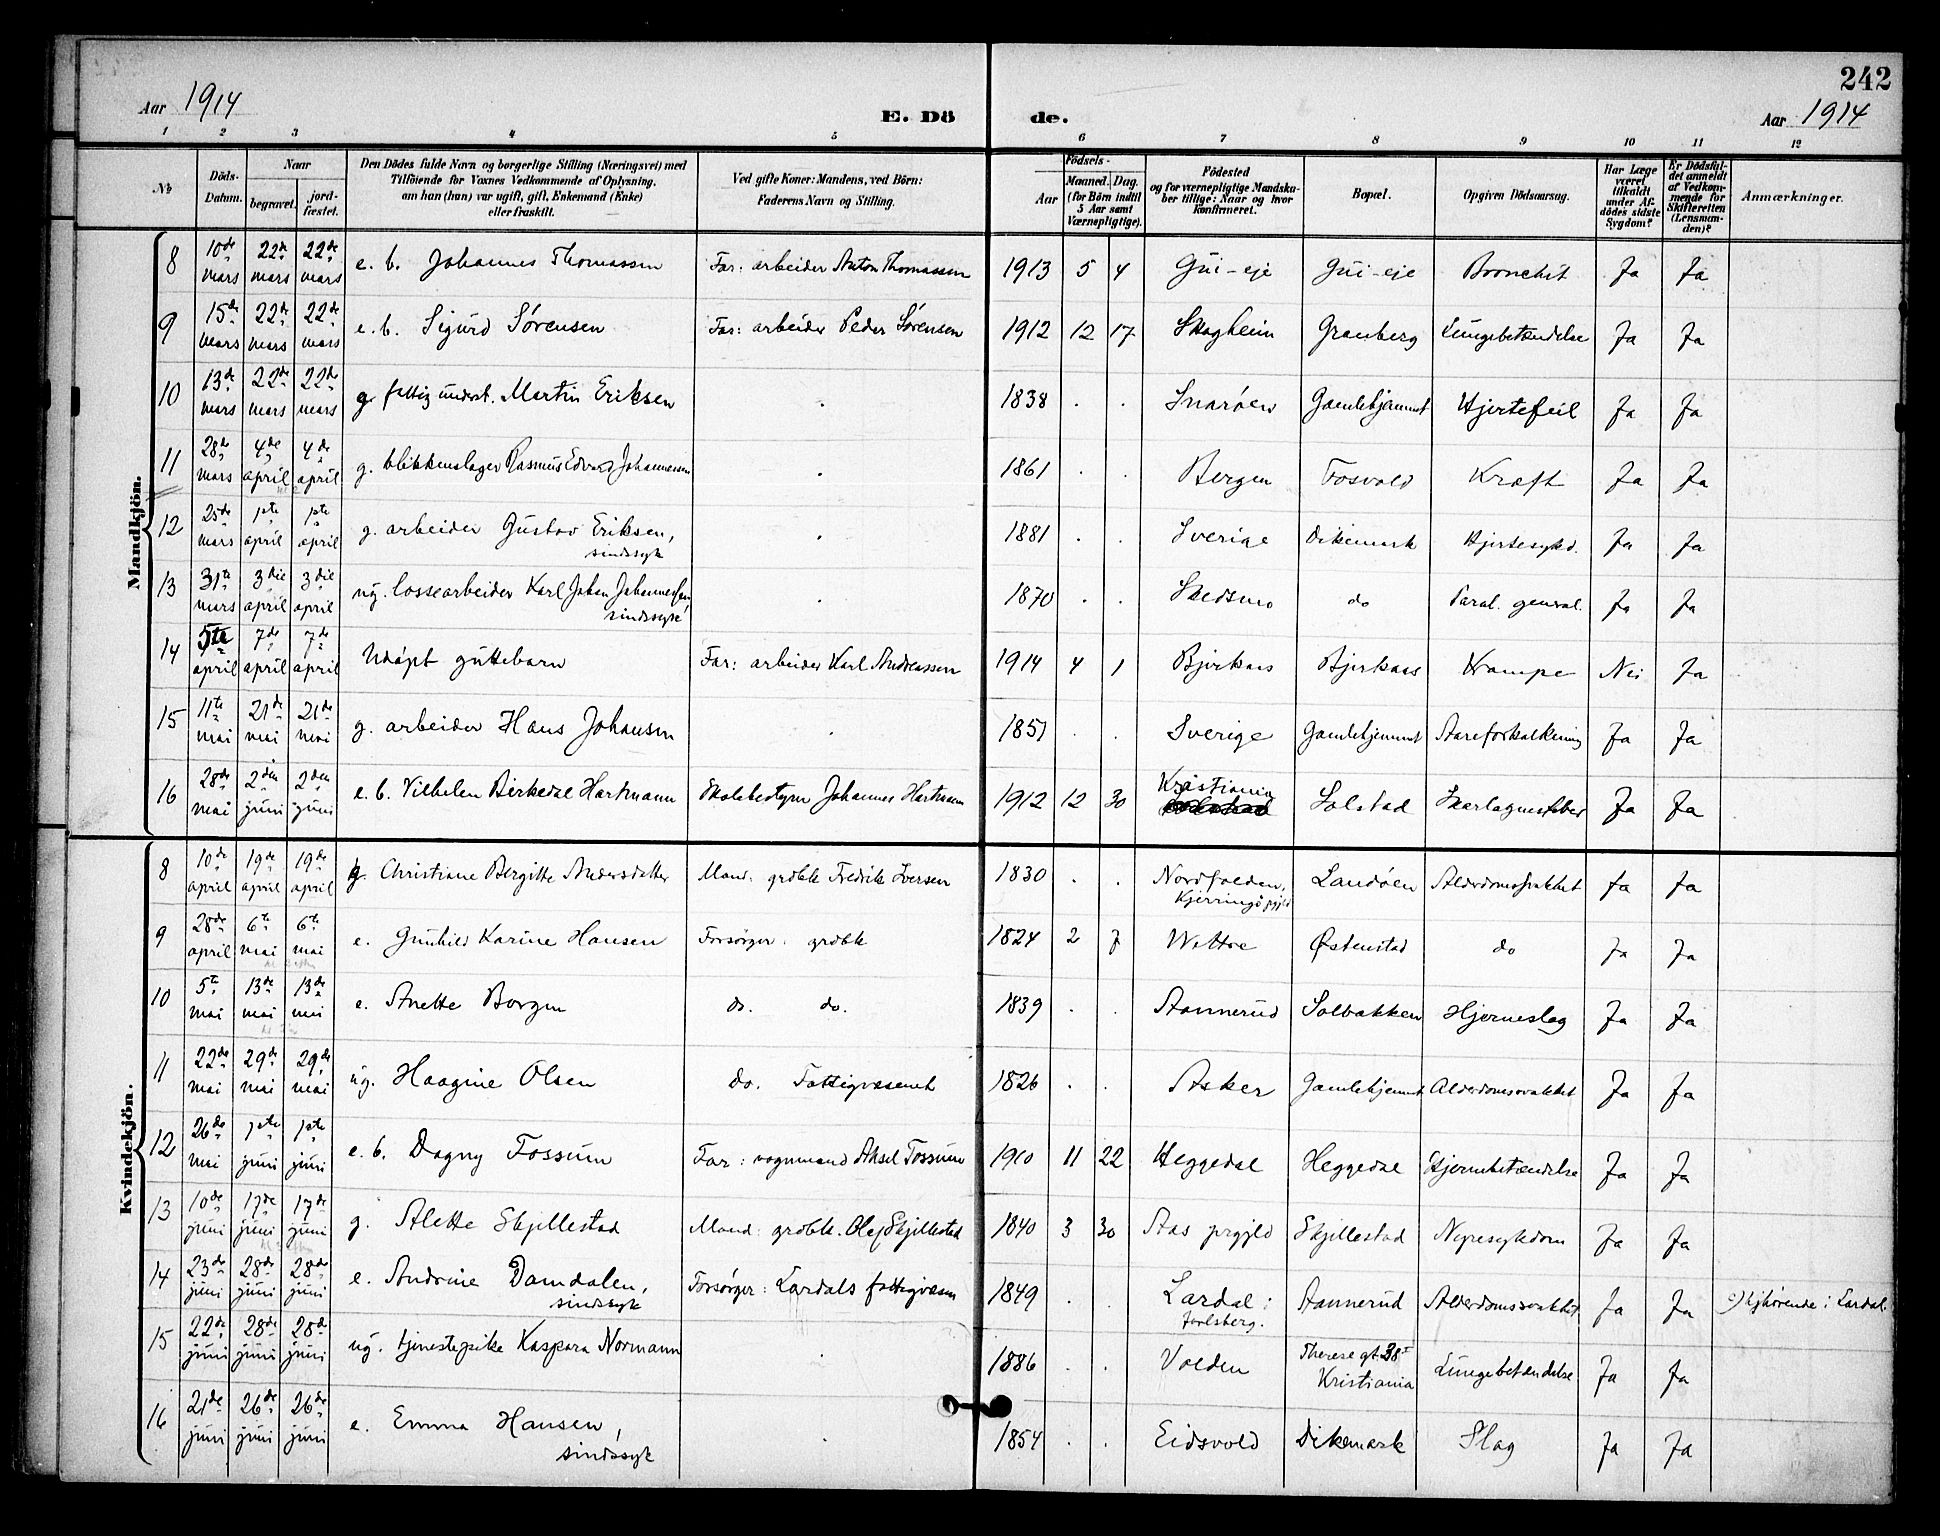 242
Aar 1914
E. Dö de.
Aar 1914
1 2 3 4 5 6 7 8 9 10 11 12
No
Döds-Datum.
Naar
begravet.
jord-fæstet.
Den Dödes fulde Navn og borgerlige Stilling (Næringsvei) med
Tilföiende for Voxnes Vedkommende af Oplysning,
om han (hun) var ugift, gift, Enkemand (Enke)
eller fraskilt.
Ved gifte Koner: Mandens, ved Börn:
Faderens Navn og Stilling.
Födsels-
Aar
Maaned. Dag.
(for Börn indtil
5 Aar samt
Værnepligtige).
Födested
og for værnepligtige Mandska-
ber tillige: Naar og hvor
konfirmeret.
Bopæl.
Opgiven Dödsaarsag.
Har Læge
været
tilkaldt
under Af-
dödes sidste
Sygdom?
Er Dödsfal-
det anmeldt
af Vedkom-
mende for
Skifteretten
(Lensman-
den)?
Anmærkninger.
Mandkjön.
8 10de mars 22de mars 22de mars e. b. Johannes Thomassen Far: arbeider Anton Thomassen 1913 5 4 Gui-eje Gui-eje Bronchit Ja Ja
9 15de mars 22de mars 22de mars e. b. Sigurd Sørensen Far: arbeider Peder Sørensen 1912 12 17 Skogheim Granberg Lungebetændelse Ja Ja
10 13de mars 22de mars 22de mars g. fattigunderst. Martin Eriksen 1838 . . Snarøen Gamlehjemmet Hjertefeil Ja Ja
11 28de mars 4de april 4de april g. blikkenslager Rasmus Edvard Johannessen 1861 . . Bergen Fosvold Kræft Ja Ja
12 25de mars 1ste april 1ste april g. arbeider Gustav Eriksen, sindssyk 1881 . . Sverige Dikemark Hjertesykd. Ja Ja
13 31te mars 3die april 3die april ug. lossearbeider Karl Johan Johannessen sindssyk 1870 . . Skedsmo do Paral. general. Ja Ja
14 5te april 7de april 7de april Udøpt guttebarn Far: arbeider Karl Andreassen 1914 4 1 Bjerkaas Bjerkaas Krampe Nei Ja
15 11te mai 21de mai 21de mai g. arbeider Hans Johansen 1851 . . Sverige Gamlehjemmet Aareforkalkning Ja Ja
16 28de mai 2den juni 2den juni e. b. Vilhelm Birkedal Hartmann Skolebestyrer Johannes Hartmann 1912 12 30 Kristiania Solstad Skarlagensfeber Ja Ja
Kvindekjön.
8 10de april 19de april 19de april g. Christiane Bergitte Andersdatter Mand: grdbk Fredrik Iversen 1830 . . Nordfolden, Kjerringø prgjld Landøen Alderdomssvakhet Ja Ja
9 28de april 6te mai 6te mai e. Gunhild Karine Hansen Forsørger: grdbk 1824 2 7 Wettre Østenstad do Ja Ja
10 5te mai 13de mai 13de mai e. Anette Borgen do. do. 1839 . . Aannerud Solbakken Hjerneslag Ja Ja
11 22de mai 29de mai 29de mai ug. Haagine Olsen do. Fattigvæsenet 1826 . . Asker Gamlehjemmet Alderdomssvakhet Ja Ja
12 26de mai 1ste juni 1ste juni e. b. Dagny Fossum Far: vognmand Aksel Fossum 1910 11 22 Heggedal Heggedal Hjernebetændelse Ja Ja
13 10de juni 17de juni 17de juni g. Alette Skjillestad Mand: grdbk. Olef Skjillestad 1840 3 30 Aas prgjld Skjillestad Nyresykdom Ja Ja
14 23de juni 28de juni 28de juni e. Andrine Damdalen, sindssyk Forsørger: Lardals fattigvæsen 1849 . . Lardal i Jarlsberg. Aannerud Alderdomssvakhet Ja Ja Hjhørende i Lardal
15 22de juni 28de juni 28de juni ug. tjenestepike Kaspara Normann 1886 . . Volden Therese gt. 38 I Kristiania Lungebetændelse Ja Ja
16 21de juni 26de juni 26de juni e. Emma Hansen, sindssyk 1854 . . Eidsvold Dikemark Slag Ja Ja